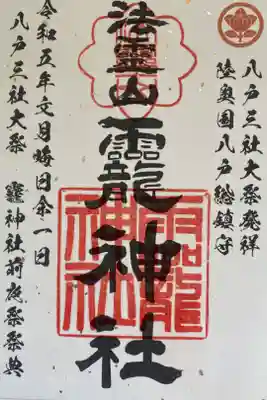 八戸三社大祭発祥
陸奥国八戸総鎮守
法靈山龗神社
龗神社
令和五年文月晦日余一日
八戸三社大祭 龗神社前夜祭祭典